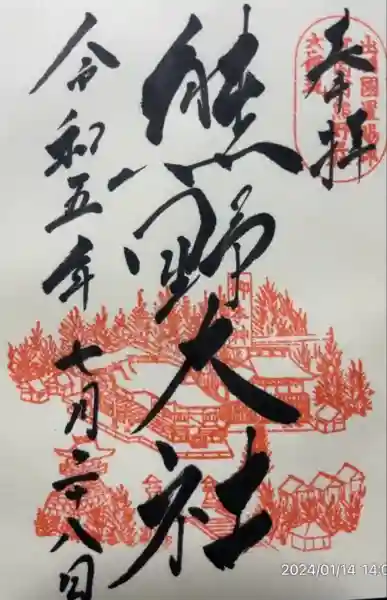 奉拝
熊野大社
令和五年七月二十八日
2024/01/14 14:0